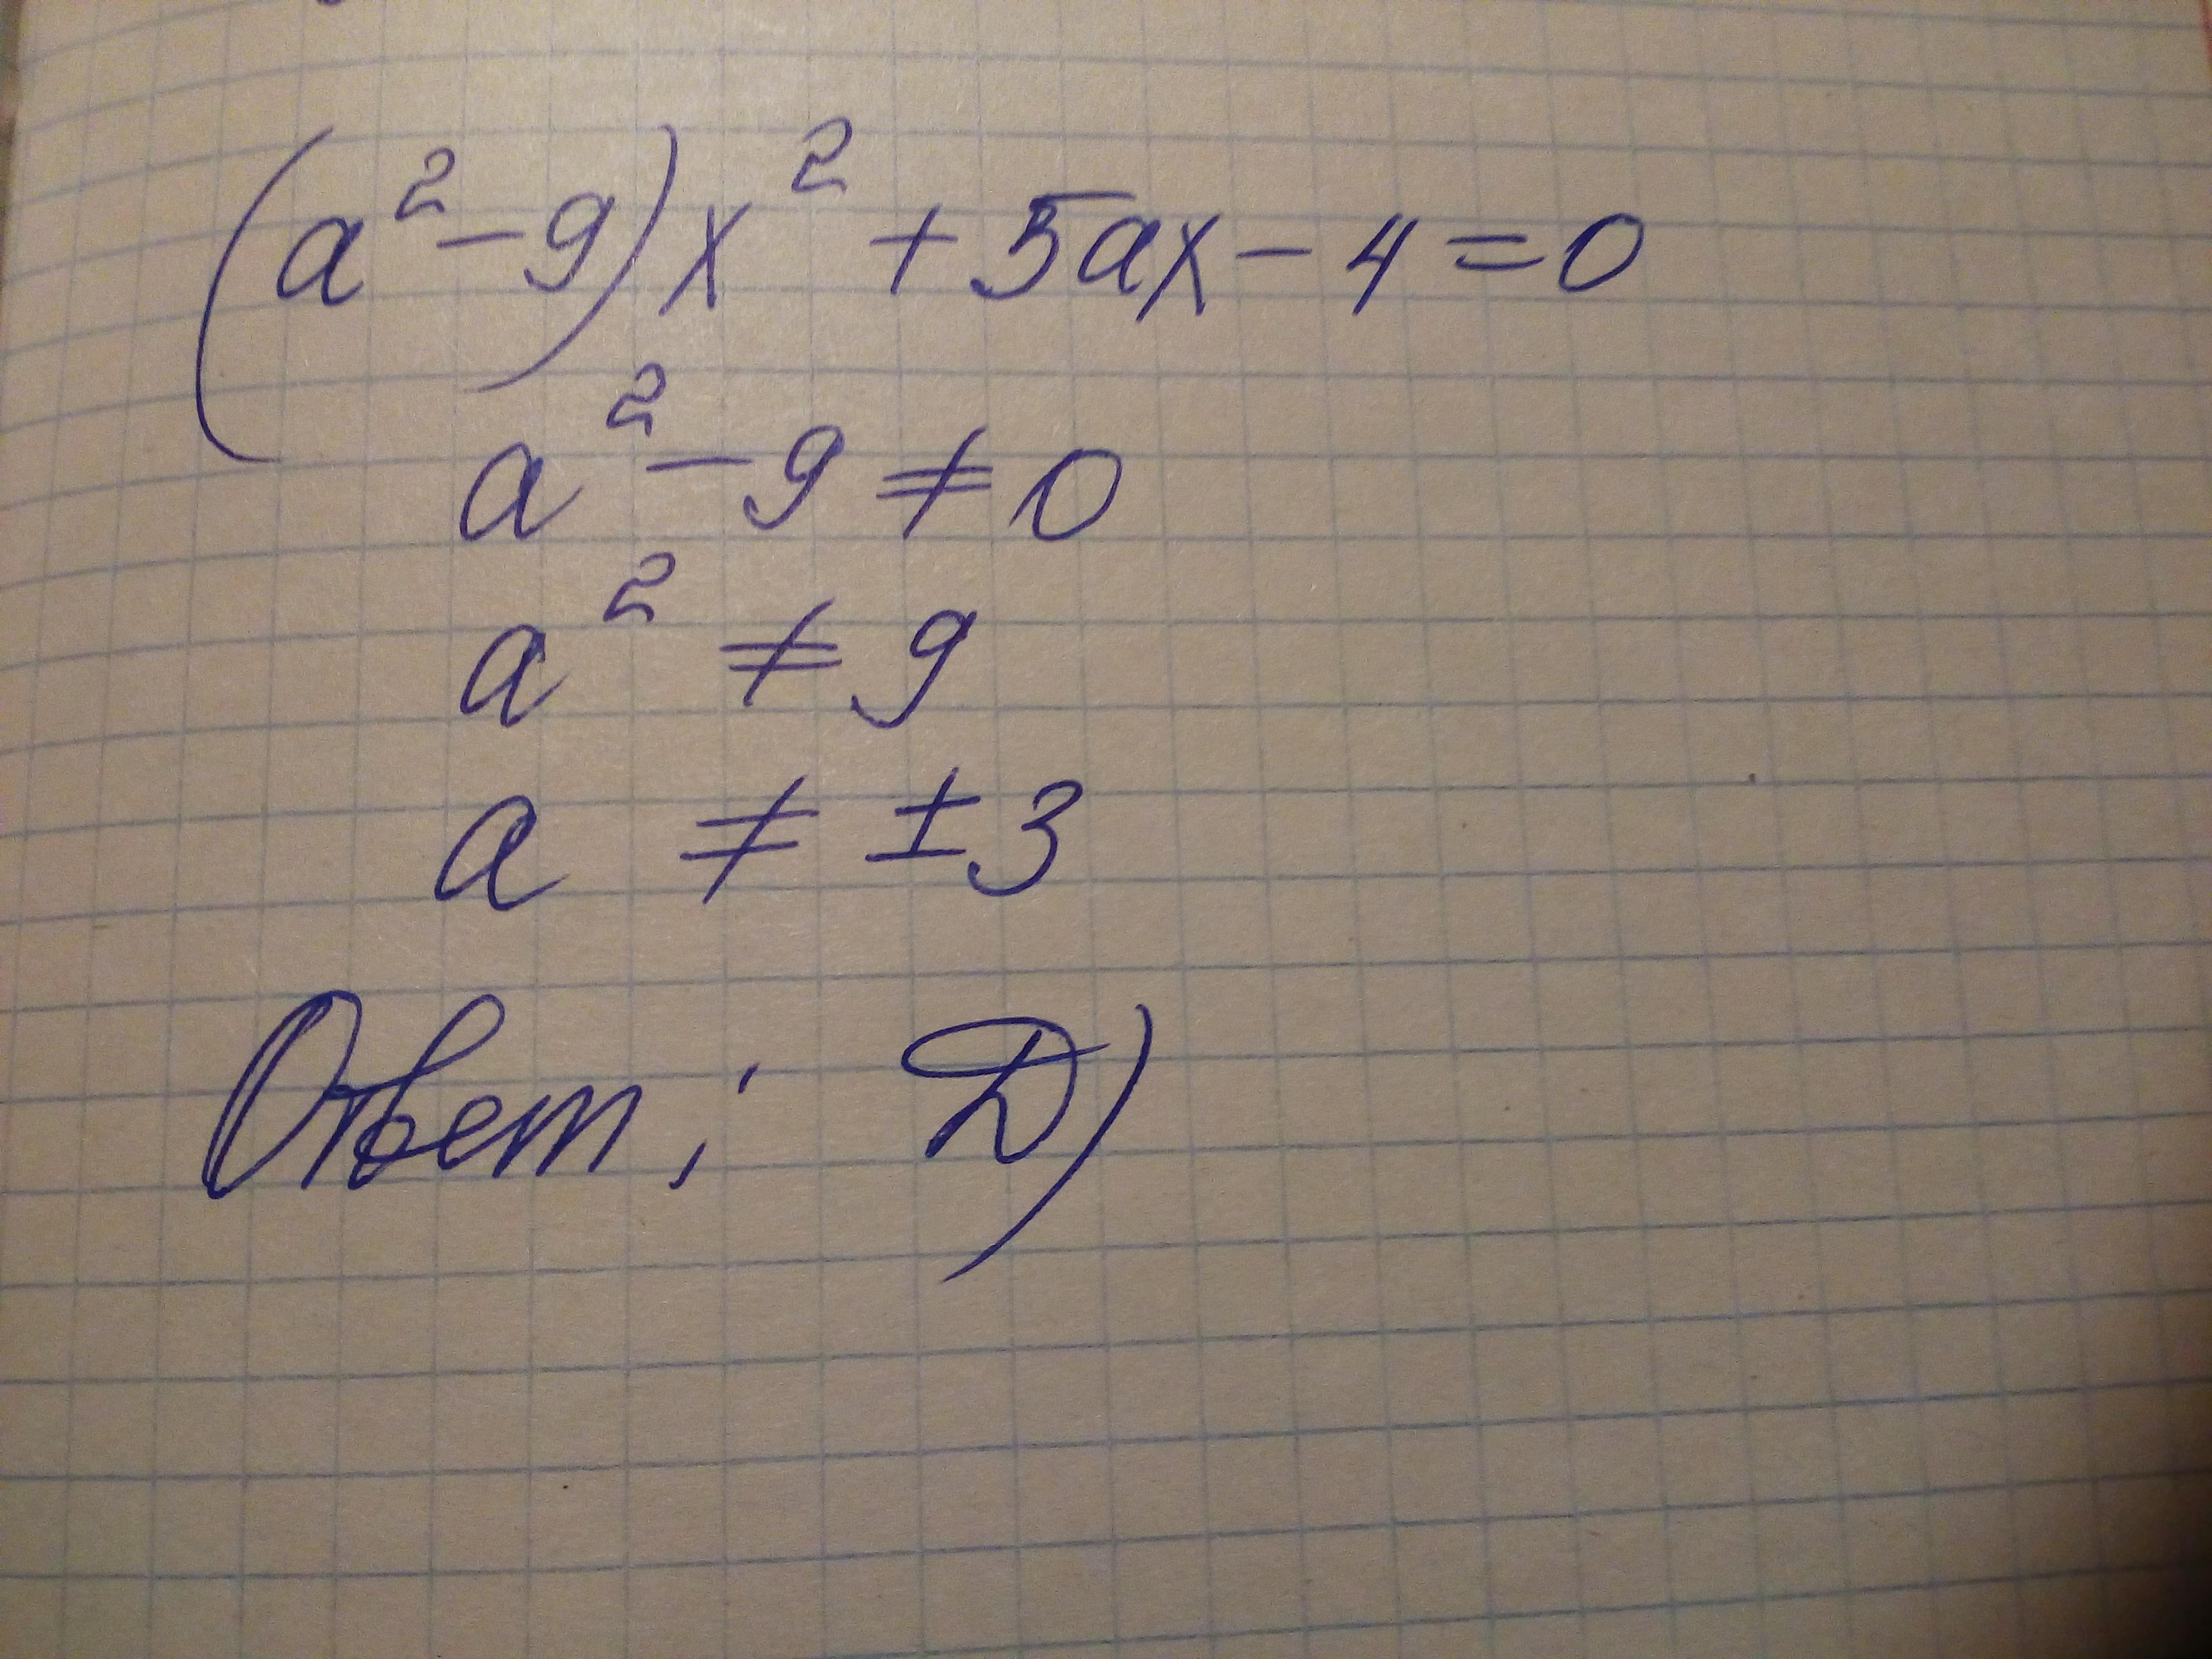 (a² - 9)x² + 5ax - 4 = 0
a² - 9 ≠ 0
a² ≠ 9
a ≠ ±3
Ответ: Д)